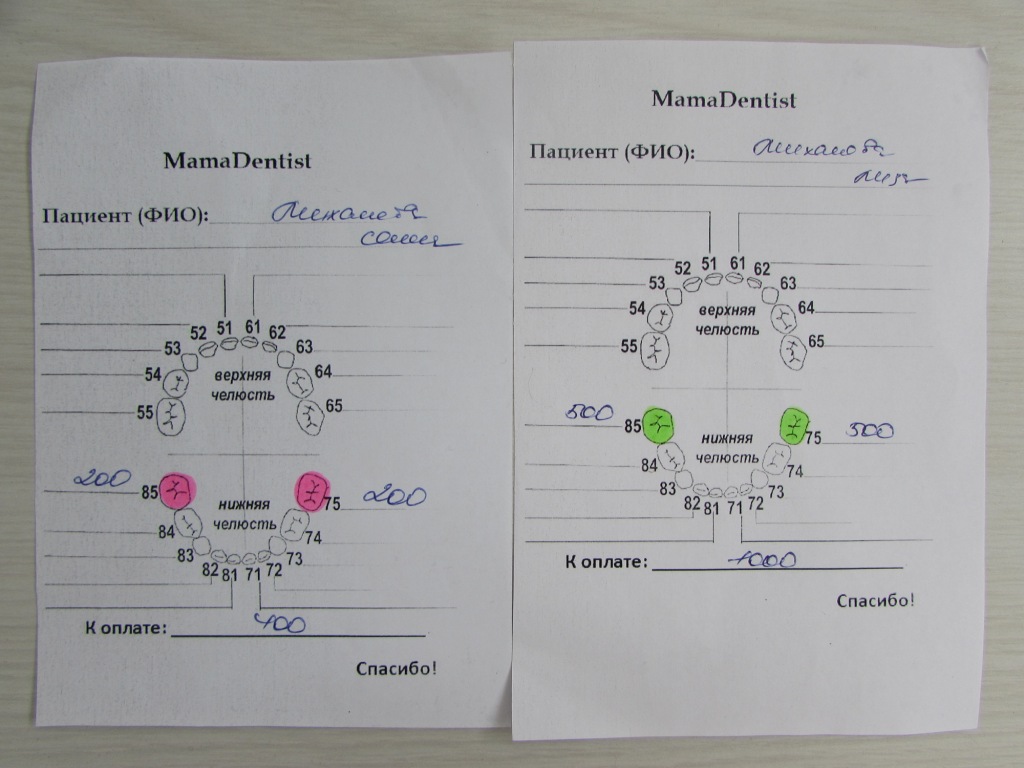 MamaDentist
Пациент (ФИО): Михалева
Соня
51 61
52 62
53 63
54 верхняя 64
челюсть
55 65
200
85 75 200
нижняя
84 челюсть 74
83 73
82 81 71 72
К оплате: 400
Спасибо!
MamaDentist
Пациент (ФИО): Михалева
Лиза
51 61
52 62
53 63
54 верхняя 64
челюсть
55 65
500
85 75 500
нижняя
84 челюсть 74
83 73
82 81 71 72
К оплате: 1000
Спасибо!